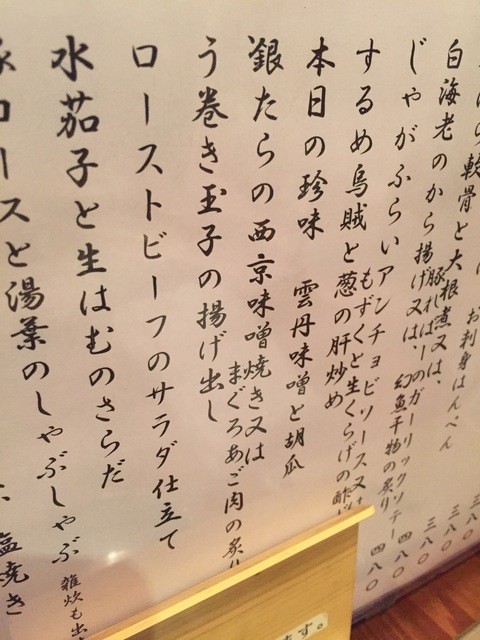 軟骨と大根煮又は、お刺身はんぺん 三八〇
白海老のから揚げ又は、豚ればーのガーリックソテー 三八〇
幻魚干物の炙り 四八〇
じゃがふらいアンチョビソース又は
もずくと生くらげの酢 四八〇
するめ烏賊と葱の肝炒め
本日の珍味 雲丹味噌と胡瓜
銀たらの西京味噌焼き又は
まぐろあご肉の炙り
う巻き玉子の揚げ出し
ローストビーフのサラダ仕立て
水茄子と生はむのさらだ
ロースと湯葉のしゃぶしゃぶ 雑炊も出
塩焼き
ます。